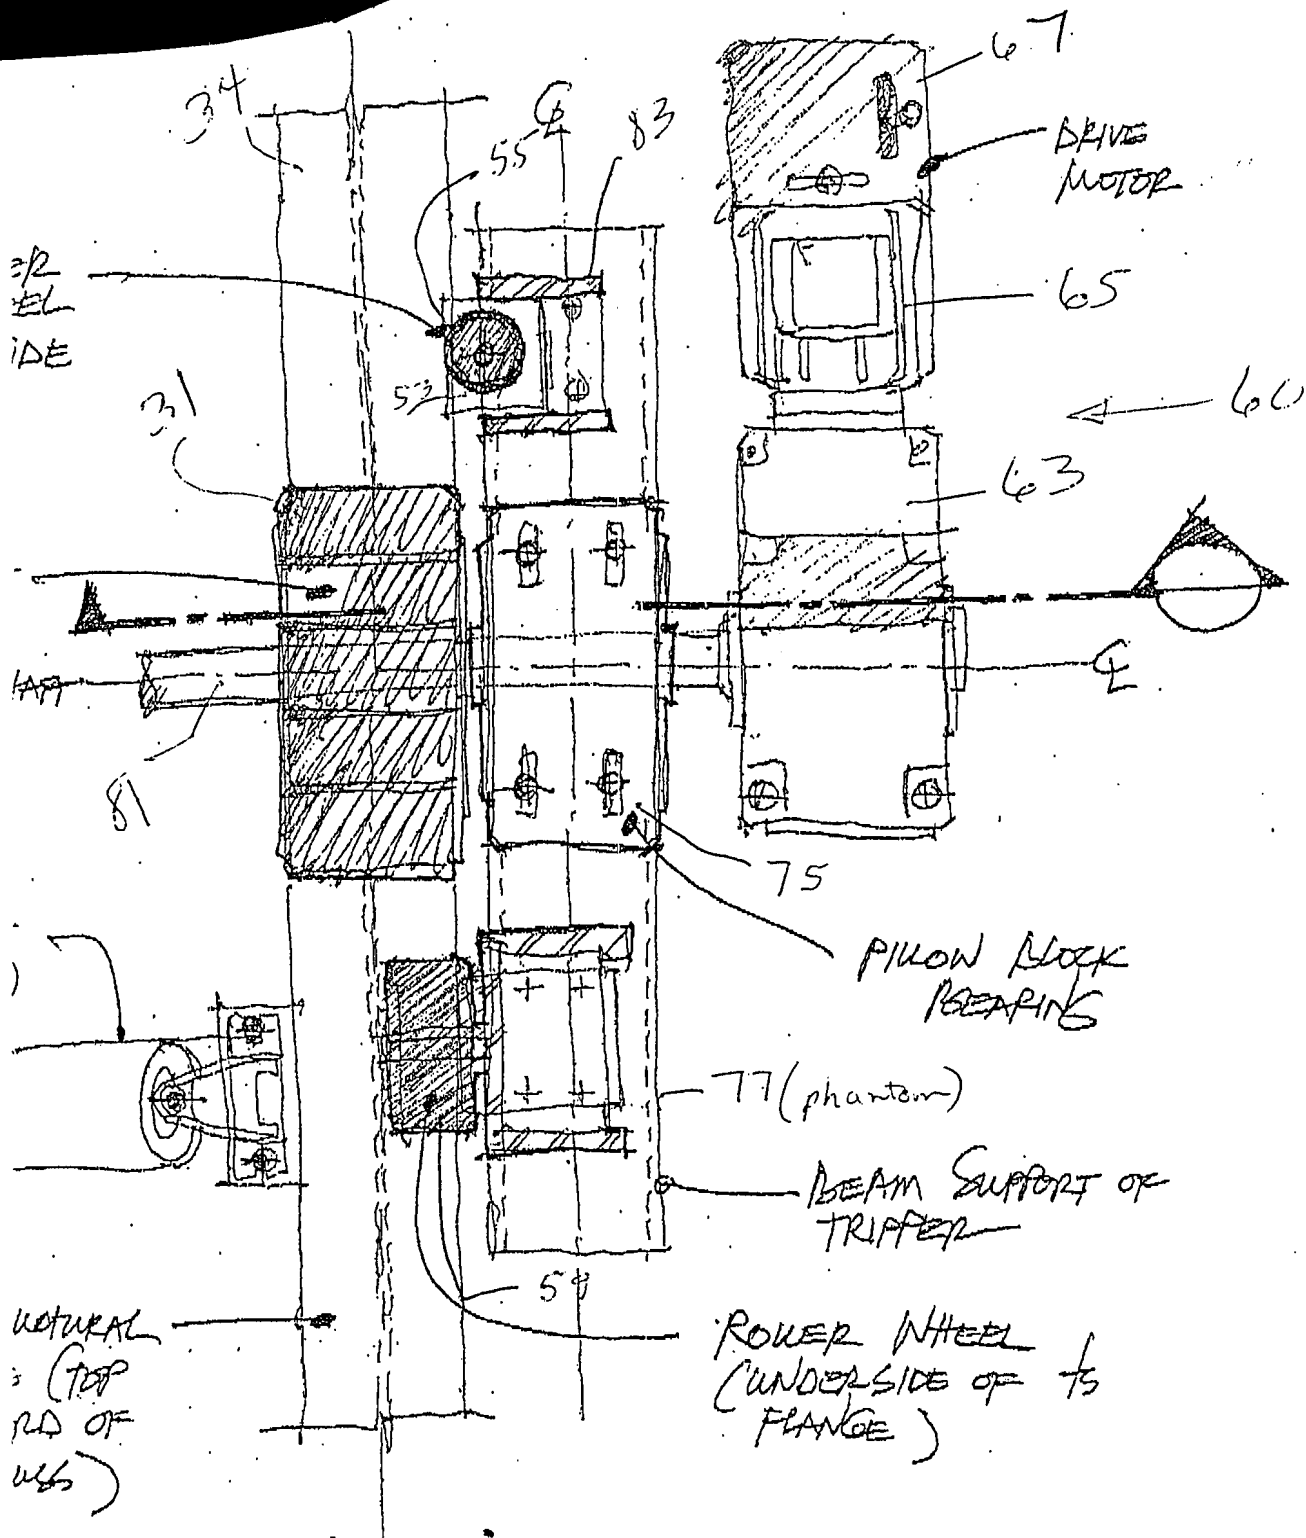 67
34
℄
83
55
DRIVE
MOTOR
ER
EL
IDE
65
53
31
60
63
℄
81
75
PILLOW BLOCK
BEARING
)
77 (phantom)
BEAM SUPPORT OF
TRIPPER
59
ROLLER WHEEL
(UNDERSIDE OF
FLANGE)
(TOP
RD OF
USS)